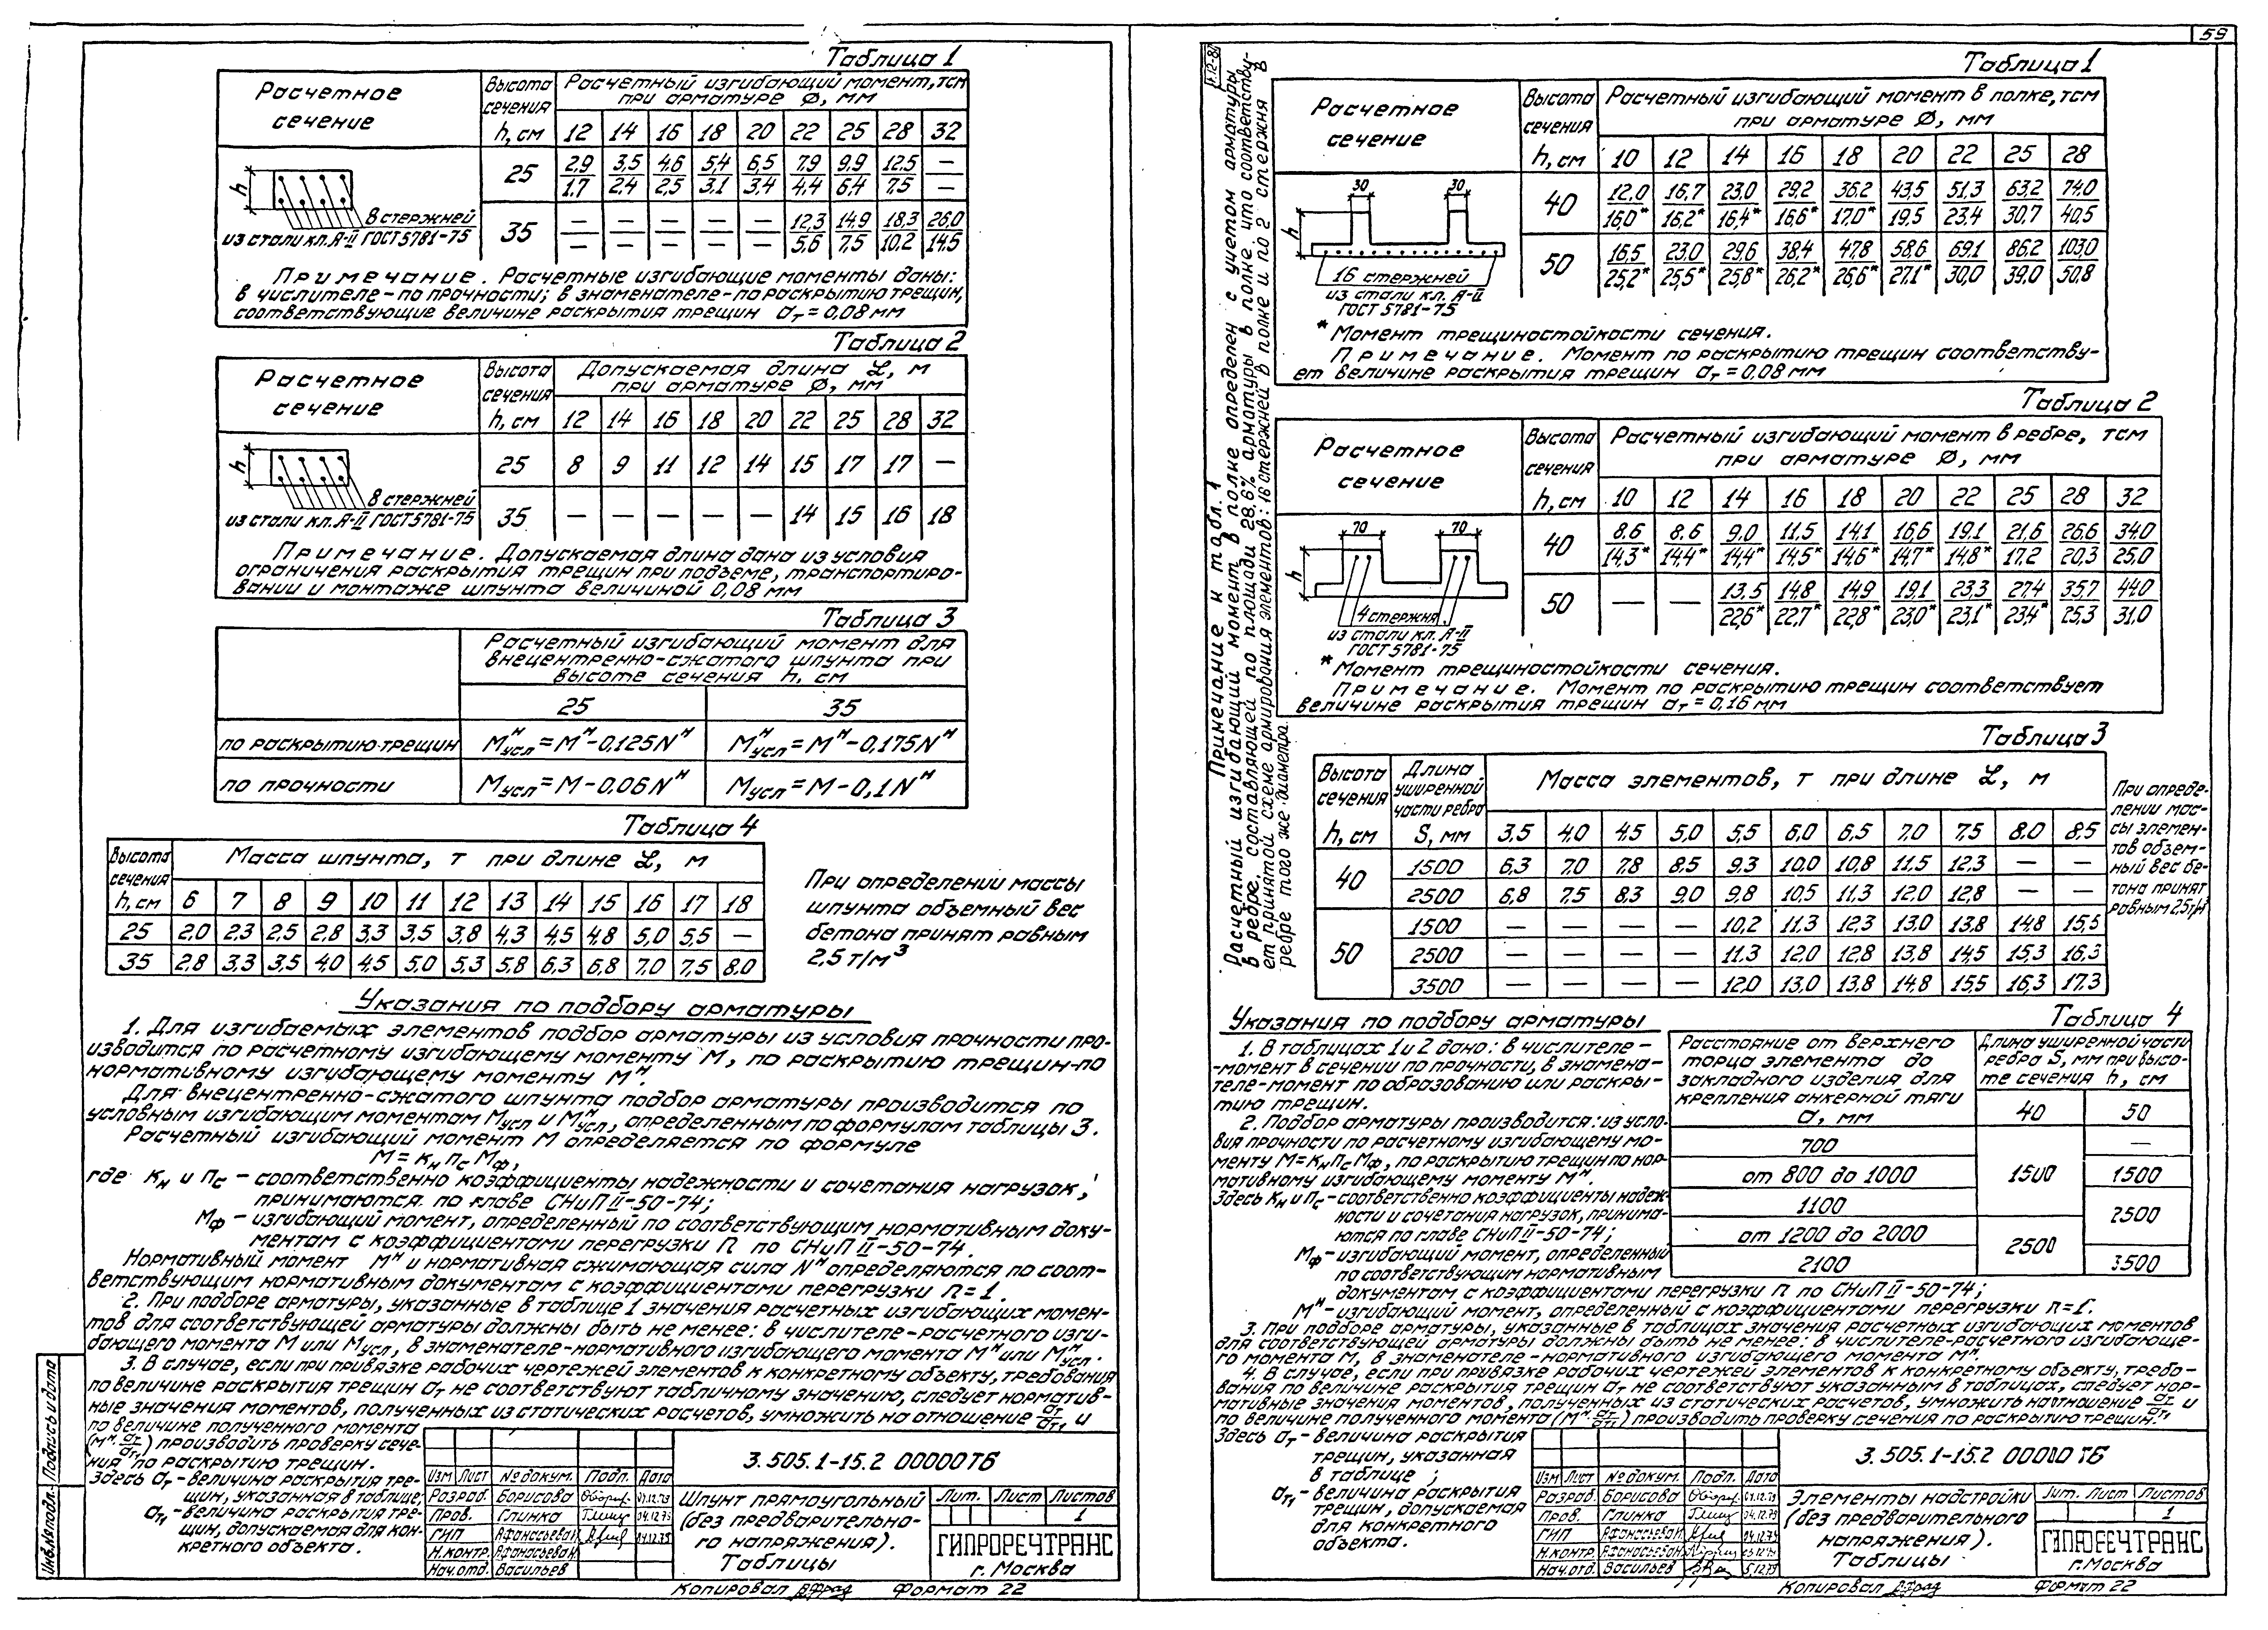 59
Таблица 1
Расчетное сечение | Высота сечения h, см | Расчетный изгибающий момент, тсм при арматуре Ø, мм
12 | 14 | 16 | 18 | 20 | 22 | 25 | 28 | 32
25 | 2,9 | 3,5 | 4,6 | 5,4 | 6,5 | 7,9 | 9,9 | 12,5 | —
1,7 | 2,4 | 2,5 | 3,1 | 3,4 | 4,4 | 6,4 | 7,5 | —
35 | — | — | — | — | — | 12,3 | 14,9 | 18,3 | 26,0
— | — | — | — | — | 5,6 | 7,5 | 10,2 | 14,5
h
8 стержней
из стали кл. А-II ГОСТ 5781-75
Примечание. Расчетные изгибающие моменты даны:
в числителе-по прочности; в знаменателе-по раскрытию трещин,
соответствующие величине раскрытия трещин ат=0,08 мм
Таблица 2
Расчетное сечение | Высота сечения h, см | Допускаемая длина L, м при арматуре Ø, мм
12 | 14 | 16 | 18 | 20 | 22 | 25 | 28 | 32
25 | 8 | 9 | 11 | 12 | 14 | 15 | 17 | 17 | —
35 | — | — | — | — | — | 14 | 15 | 16 | 18
h
8 стержней
из стали кл. А-II ГОСТ 5781-75
Примечание. Допускаемая длина дана из условия
ограничения раскрытия трещин при подъеме, транспортиро-
вании и монтаже шпунта величиной 0,08 мм
Таблица 3
Расчетный изгибающий момент для
внецентренно-сжатого шпунта при
высоте сечения h, см
25 | 35
по раскрытию трещин | Mᴴусл=Mᴴ-0,125Nᴴ | Mᴴусл=Mᴴ-0,175Nᴴ
по прочности | Mусл=M-0.06Nᴴ | Mусл=M-0,1Nᴴ
Таблица 4
Высота сечения h, см | Масса шпунта, т при длине L, м
6 | 7 | 8 | 9 | 10 | 11 | 12 | 13 | 14 | 15 | 16 | 17 | 18
25 | 2,0 | 2,3 | 2,5 | 2,8 | 3,3 | 3,5 | 3,8 | 4,3 | 4,5 | 4,8 | 5,0 | 5,5 | —
35 | 2,8 | 3,3 | 3,5 | 4,0 | 4,5 | 5,0 | 5,3 | 5,8 | 6,3 | 6,8 | 7,0 | 7,5 | 8,0
При определении массы
шпунта объемный вес
бетона принят равным
2,5 т/м³
Указания по подбору арматуры
1. Для изгибаемых элементов подбор арматуры из условия прочности про-
изводится по расчетному изгибающему моменту М, по раскрытию трещин-по
нормативному изгибающему моменту Мᴴ.
Для внецентренно-сжатого шпунта подбор арматуры производится по
условным изгибающим моментам Mусл и Mᴴусл, определенным по формулам таблицы 3.
Расчетный изгибающий момент М определяется по формуле
M=кн nс Mф,
где кн и nс – соответственно коэффициенты надежности и сочетания нагрузок,
принимаются по главе СНиП II-50-74;
Mф – изгибающий момент, определенный по соответствующим нормативным доку-
ментам с коэффициентами перегрузки n по СНиП II-50-74.
Нормативный момент Мᴴ и нормативная сжимающая сила Nᴴ определяются по соот-
ветствующим нормативным документам с коэффициентами перегрузки n=1.
2. При подборе арматуры, указанные в таблице 1 значения расчетных изгибающих момен-
тов для соответствующей арматуры должны быть не менее: в числителе-расчетного изги-
бающего момента М или Mусл, в знаменателе-нормативного изгибающего момента Мᴴ или Mᴴусл.
3. В случае, если при привязке рабочих чертежей элементов к конкретному объекту, требования
по величине раскрытия трещин ат не соответствуют табличному значению, следует норматив-
ные значения моментов, полученных из статических расчетов, умножить на отношение ат/ат1 и
по величине полученного момента
(Mᴴ·ат/ат1) производить проверку сече-
ния по раскрытию трещин.
Здесь ат – величина раскрытия тре-
щин, указанная в таблице,
ат1 – величина раскрытия тре-
щин, допускаемая для кон-
кретного объекта.
Подпись и дата
Инв.№подл.
3.505.1-15.2 00000ТБ
Изм | Лист | № докум. | Подп. | Дата
Разраб. | Борисова | 01.12.79
Пров. | Глинка | 04.12.79
ГИП | Афанасьева Н. | 04.12.79
Н.контр. | Афанасьева Н.
Нач.отд. | Васильев
Шпунт прямоугольный
(без предварительно-
го напряжения).
Таблицы
Лит. | Лист | Листов
1
ГИПРОРЕЧТРАНС
г. Москва
Копировал
Формат 22
Примечание к табл. 1
Расчетный изгибающий момент в полке определен с учетом арматуры
в ребре, составляющей по площади 28,6% арматуры в полке, что соответству-
ет принятой схеме армирования элементов: 16 стержней в полке и по 2 стержня в
ребре того же диаметра.
Таблица 1
Расчетное сечение | Высота сечения h, см | Расчетный изгибающий момент в полке, тсм при арматуре Ø, мм
10 | 12 | 14 | 16 | 18 | 20 | 22 | 25 | 28
40 | 12,0 | 16,7 | 23,0 | 29,2 | 36,2 | 43,5 | 51,3 | 63,2 | 74,0
16,0* | 16,2* | 16,4* | 16,6* | 17,0* | 19,5 | 23,4 | 30,7 | 40,5
50 | 16,5 | 23,0 | 29,6 | 38,4 | 47,8 | 58,6 | 69,1 | 86,2 | 103,0
25,2* | 25,5* | 25,8* | 26,2* | 26,6* | 27,1* | 30,0 | 39,0 | 50,8
30 30
h
16 стержней
из стали кл. А-II
ГОСТ 5781-75
* Момент трещиностойкости сечения.
Примечание. Момент по раскрытию трещин соответству-
ет величине раскрытия трещин ат=0,08 мм
Таблица 2
Расчетное сечение | Высота сечения h, см | Расчетный изгибающий момент в ребре, тсм при арматуре Ø, мм
10 | 12 | 14 | 16 | 18 | 20 | 22 | 25 | 28 | 32
40 | 8.6 | 8.6 | 9.0 | 11,5 | 14,1 | 16,6 | 19,1 | 21,6 | 26,6 | 34,0
14,3* | 14,4* | 14,4* | 14,5* | 14,6* | 14,7* | 14,8* | 17,2 | 20,3 | 25,0
50 | — | — | 13,5 | 14,8 | 14,9 | 19,1 | 23,3 | 27,4 | 35,7 | 44,0
22,6* | 22,7* | 22,8* | 23,0* | 23,1* | 23,4* | 25,3 | 31,0
70 70
h
4 стержня
из стали кл. А-II
ГОСТ 5781-75
* Момент трещиностойкости сечения.
Примечание. Момент по раскрытию трещин соответствует
величине раскрытия трещин ат=0,16 мм
Таблица 3
Высота сечения h, см | Длина уширенной части ребра S, мм | Масса элементов, т при длине L, м
3,5 | 4,0 | 4,5 | 5,0 | 5,5 | 6,0 | 6,5 | 7,0 | 7,5 | 8,0 | 8,5
40 | 1500 | 6,3 | 7,0 | 7,8 | 8,5 | 9,3 | 10,0 | 10,8 | 11,5 | 12,3 | — | —
2500 | 6,8 | 7,5 | 8,3 | 9,0 | 9,8 | 10,5 | 11,3 | 12,0 | 12,8 | — | —
50 | 1500 | — | — | — | — | 10,2 | 11,3 | 12,3 | 13,0 | 13,8 | 14,8 | 15,5
2500 | — | — | — | — | 11,3 | 12,0 | 12,8 | 13,8 | 14,5 | 15,3 | 16,3
3500 | — | — | — | — | 12,0 | 13,0 | 13,8 | 14,8 | 15,5 | 16,3 | 17,3
При опреде-
лении мас-
сы элемен-
тов объем-
ный вес бе-
тона принят
равным 2,5т/м³
Таблица 4
Расстояние от верхнего торца элемента до закладного изделия для крепления анкерной тяги а, мм | Длина уширенной части ребра S, мм при высо-те сечения h, см
40 | 50
700 | 1500 | —
от 800 до 1000 | 1500
1100 | 2500
от 1200 до 2000 | 2500
2100 | 3500
Указания по подбору арматуры
1. В таблицах 1 и 2 дано: в числителе-
-момент в сечении по прочности, в знамена-
теле-момент по образованию или раскры-
тию трещин.
2. Подбор арматуры производится: из усло-
вия прочности по расчетному изгибающему мо-
менту M=кн nс Mф, по раскрытию трещин по нор-
мативному изгибающему моменту Мᴴ.
Здесь кн и nс – соответственно коэффициенты надеж-
ности и сочетания нагрузок, принима-
ются по главе СНиП II-50-74;
Mф – изгибающий момент, определенный
по соответствующим нормативным
документам с коэффициентами перегрузки n по СНиП II-50-74;
Мᴴ – изгибающий момент, определенный с коэффициентами перегрузки n=1.
3. При подборе арматуры, указанные в таблицах значения расчетных изгибающих моментов
для соответствующей арматуры должны быть не менее: в числителе-расчетного изгибающе-
го момента М, в знаменателе-нормативного изгибающего момента Мᴴ.
4. В случае, если при привязке рабочих чертежей элементов к конкретному объекту, требо-
вания по величине раскрытия трещин ат не соответствуют указанным в таблицах, следует нор-
мативные значения моментов, полученных из статических расчетов, умножить на отношение ат/ат1 и
по величине полученного момента (Mᴴ·ат/ат1) производить проверку сечения по раскрытию трещин.
Здесь ат – величина раскрытия
трещин, указанная
в таблице;
ат1 – величина раскрытия
трещин, допускаемая
для конкретного
объекта.
3.505.1-15.2 00000ТБ
Изм | Лист | № докум. | Подп. | Дата
Разраб. | Борисова | 01.12.79
Пров. | Глинка | 04.12.79
ГИП | Афанасьева Н. | 04.12.79
Н.контр. | Афанасьева Н.
Нач.отд. | Васильев | 5.12.79
Элементы надстройки
(без предварительного
напряжения).
Таблицы
Лит. | Лист | Листов
1
ГИПРОРЕЧТРАНС
г.Москва
Копировал
Формат 22